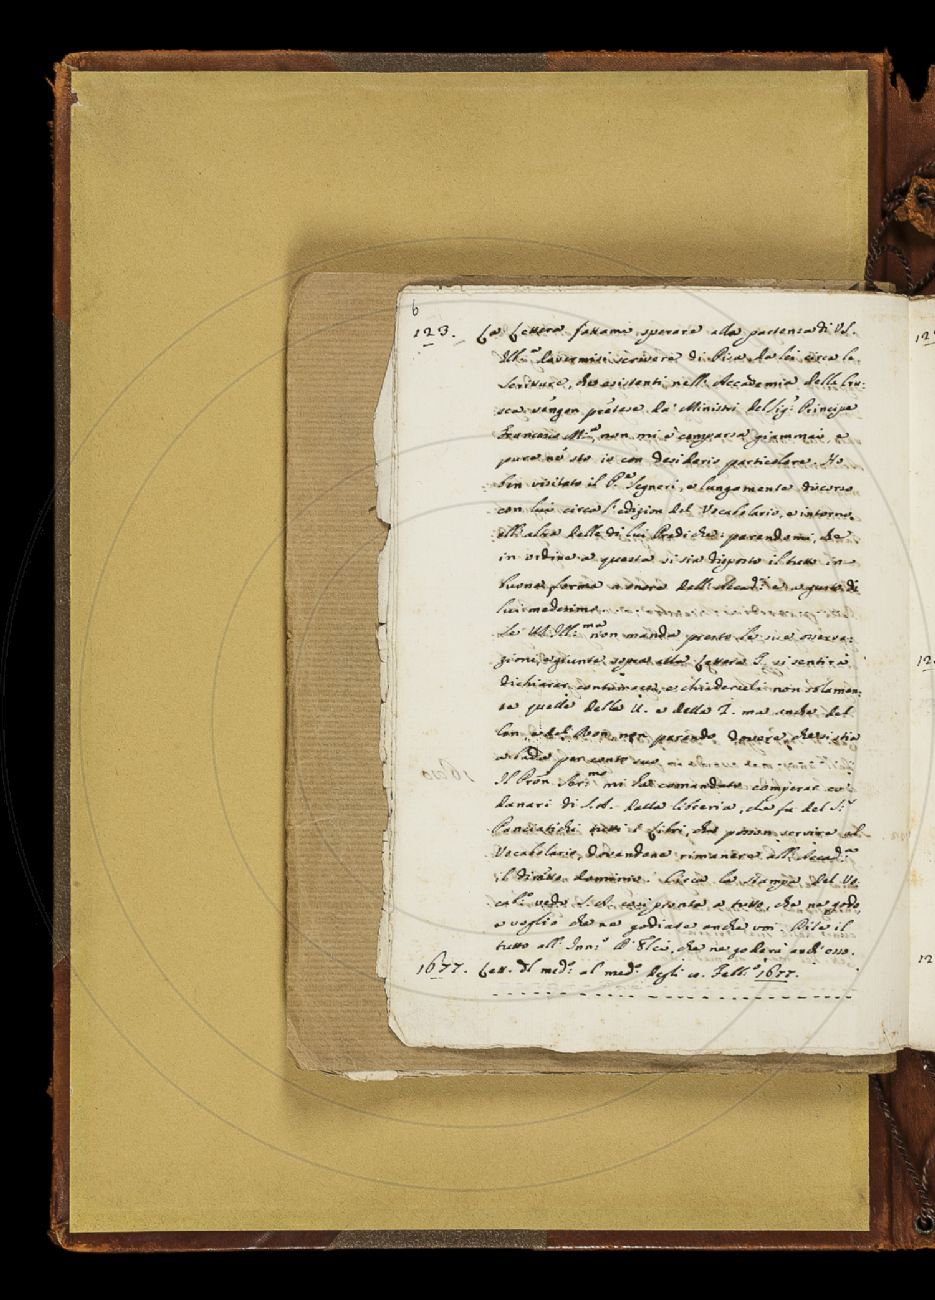 6
123. La Lettera fattami sperare alla partenza di VS.
Ill.ma dovermisi scrivere di Pisa da lei circa le
scritture, che esistenti nell'Accademia della Cru-
sca vengon pretese da' Ministri del Sig.r Principe
Francesco M.a, non mi è comparsa giammai, e
pure ne sto io con desiderio particolare. Ho
ben visitato il P.e Segneri, e lungamente discorso
con lui circa l'edizion del Vocabolario, e intorno
all'altra delle di lui Prediche: parendomi, che
in ordine a questa si sia disposto il tutto in
buona forma a onore dell'Accad.a e a gusto di
lui medesimo.
Se VS. Ill.ma non manda presto le sue osserva-
zioni, e giunte sopra alla Lettera I, si sentirà
dichiarar contumace, e chiederseli non solamen-
te quelle della U. e della I. ma anche del
Con, e del Non, non parendo dovere, che si stia
a bada per conto suo
Il Pron. Ser.mo mi ha comandato comperar co'
danari di S.A. dalla libreria, che fu del S.r
Panciatichi tutti i Libri, che posson servire al
Vocabolario, dovendone rimanere all'Accad.a
il diretto dominio. Circa la stampa del Vo
cab.o vedo S.A. così pronta a tutto, che ne godo,
e voglio che ne godiate anche voi. Dite il
tutto all'Inn.o che ne goderà anch'esso.
1677. Lett. del med.o al med.o degli 11. Febb.o 1677.